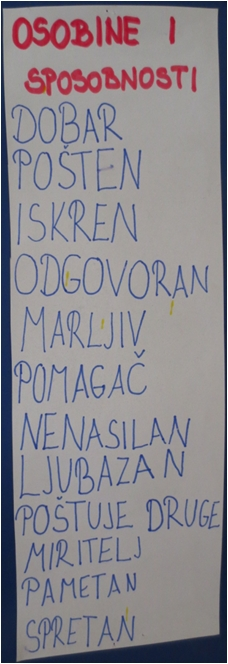 OSOBINE I
SPOSOBNOSTI
DOBAR
POŠTEN
ISKREN
ODGOVORAN
MARLJIV
POMAGAČ
NENASILAN
LJUBAZAN
POŠTUJE DRUGE
MIRITELJ
PAMETAN
SPRETAN